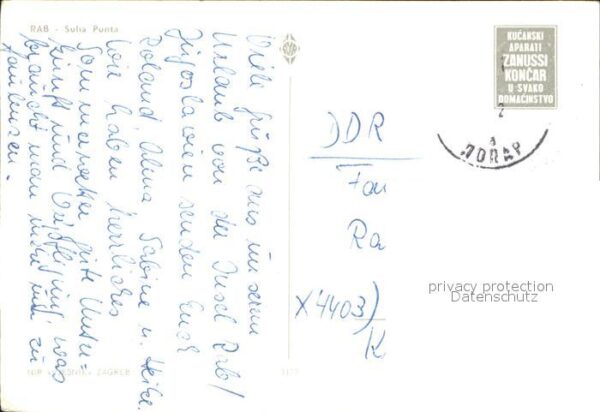 RAB - Suha Punta
Viele Grüße aus unserem
Urlaub von der Insel Rab/
Jugoslawien senden Euch
Roland, Alma, Sabine u.
Wir haben herrliches
Sommerwetter, gute Unter=
kunft und Verpflegung, was
braucht man mehr um zu
faulenzen.
KUĆANSKI
APARATI
ZANUSSI
KONČAR
U SVAKO
DOMAĆINSTVO
DDR
Fam
Ra
X 4403)
K
privacy protection
Datenschutz
ZAGREB